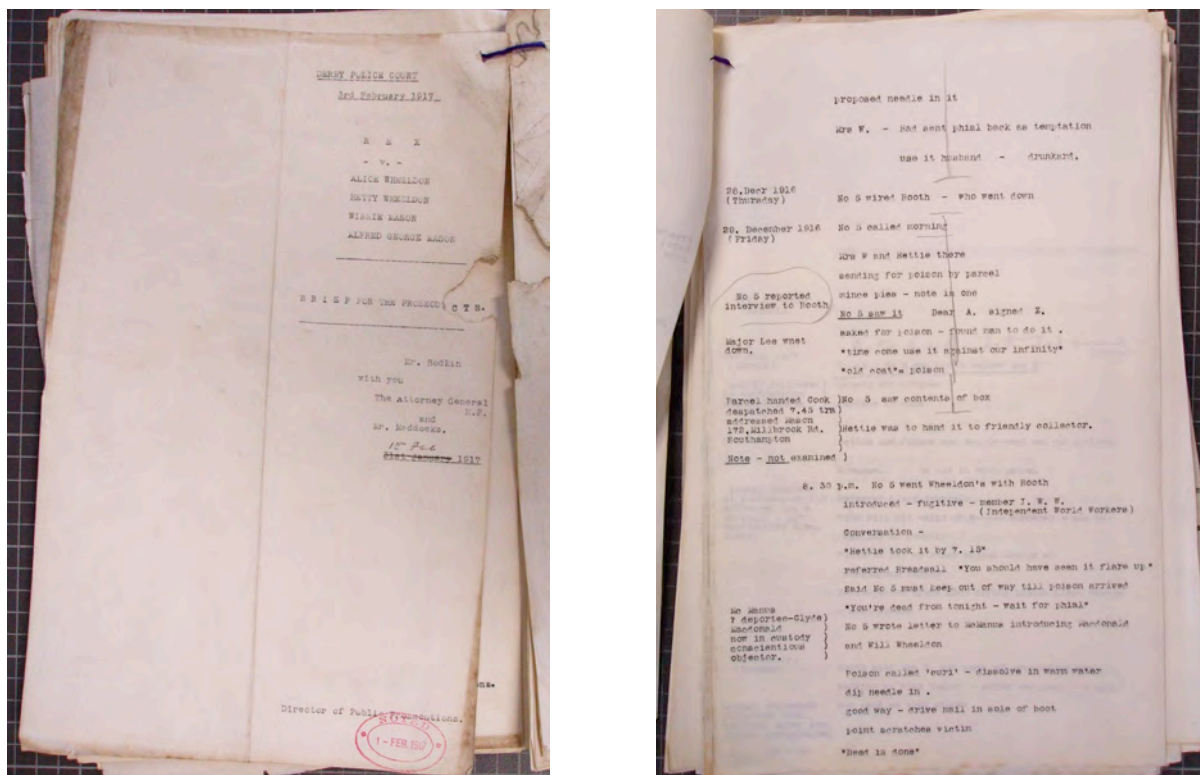 DERBY POLICE COURT
3rd February 1917
R E X
- v. -
ALICE WHEELDON
HETTY WHEELDON
WINNIE MASON
ALFRED GEORGE MASON
BRIEF FOR THE PROSECU CTN.
Mr. Bodkin
with you
The Attorney General
M.P.
and
Mr. Maddocks.
1st Feb
31st January 1917
ons.
Director of Public Prosecutions.
NOTED
1 - FEB. 1917
proposed needle in it
Mrs W. - Had sent phial back as temptation
use it husband - drunkard.
28.Decr 1916
(Thursday) No 5 wired Booth - who went down
29. December 1916 No 5 called morning
(Friday)
Mrs W and Hettie there
sending for poison by parcel
No 5 reported mince pies - note in one
interview to Booth No 5 saw it Dear A. signed Z.
asked for poison - found man to do it .
Major Lee wnet
down. "time come use it against our infinity"
"old coat"= poison
Parcel handed Cook )No 5 saw contents of box
despatched 7.45 trn)
addressed Mason )
172,Millbrook Rd. )Hettie was to hand it to friendly collector.
Southampton )
Note - not examined )
8. 30 p.m. No 5 went Wheeldon's with Booth
introduced - fugitive - member I. W. W.
(Independent World Workers)
Conversation -
"Hettie took it by 7. 15"
referred Breadsall "You should have seen it flare up"
Said No 5 must keep out of way till poison arrived
Mc Manus "You're dead from tonight - wait for phial"
? deportee-Clyde)
Macdonald ) No 5 wrote letter to McManus introducing Macdonald
now in custody ) and Will Wheeldon
conscientious )
objector. )
Poison called 'curi' - dissolve in warm water
dip needle in .
good way - drive nail in sole of boot
point scratches victim
"Deed is done"